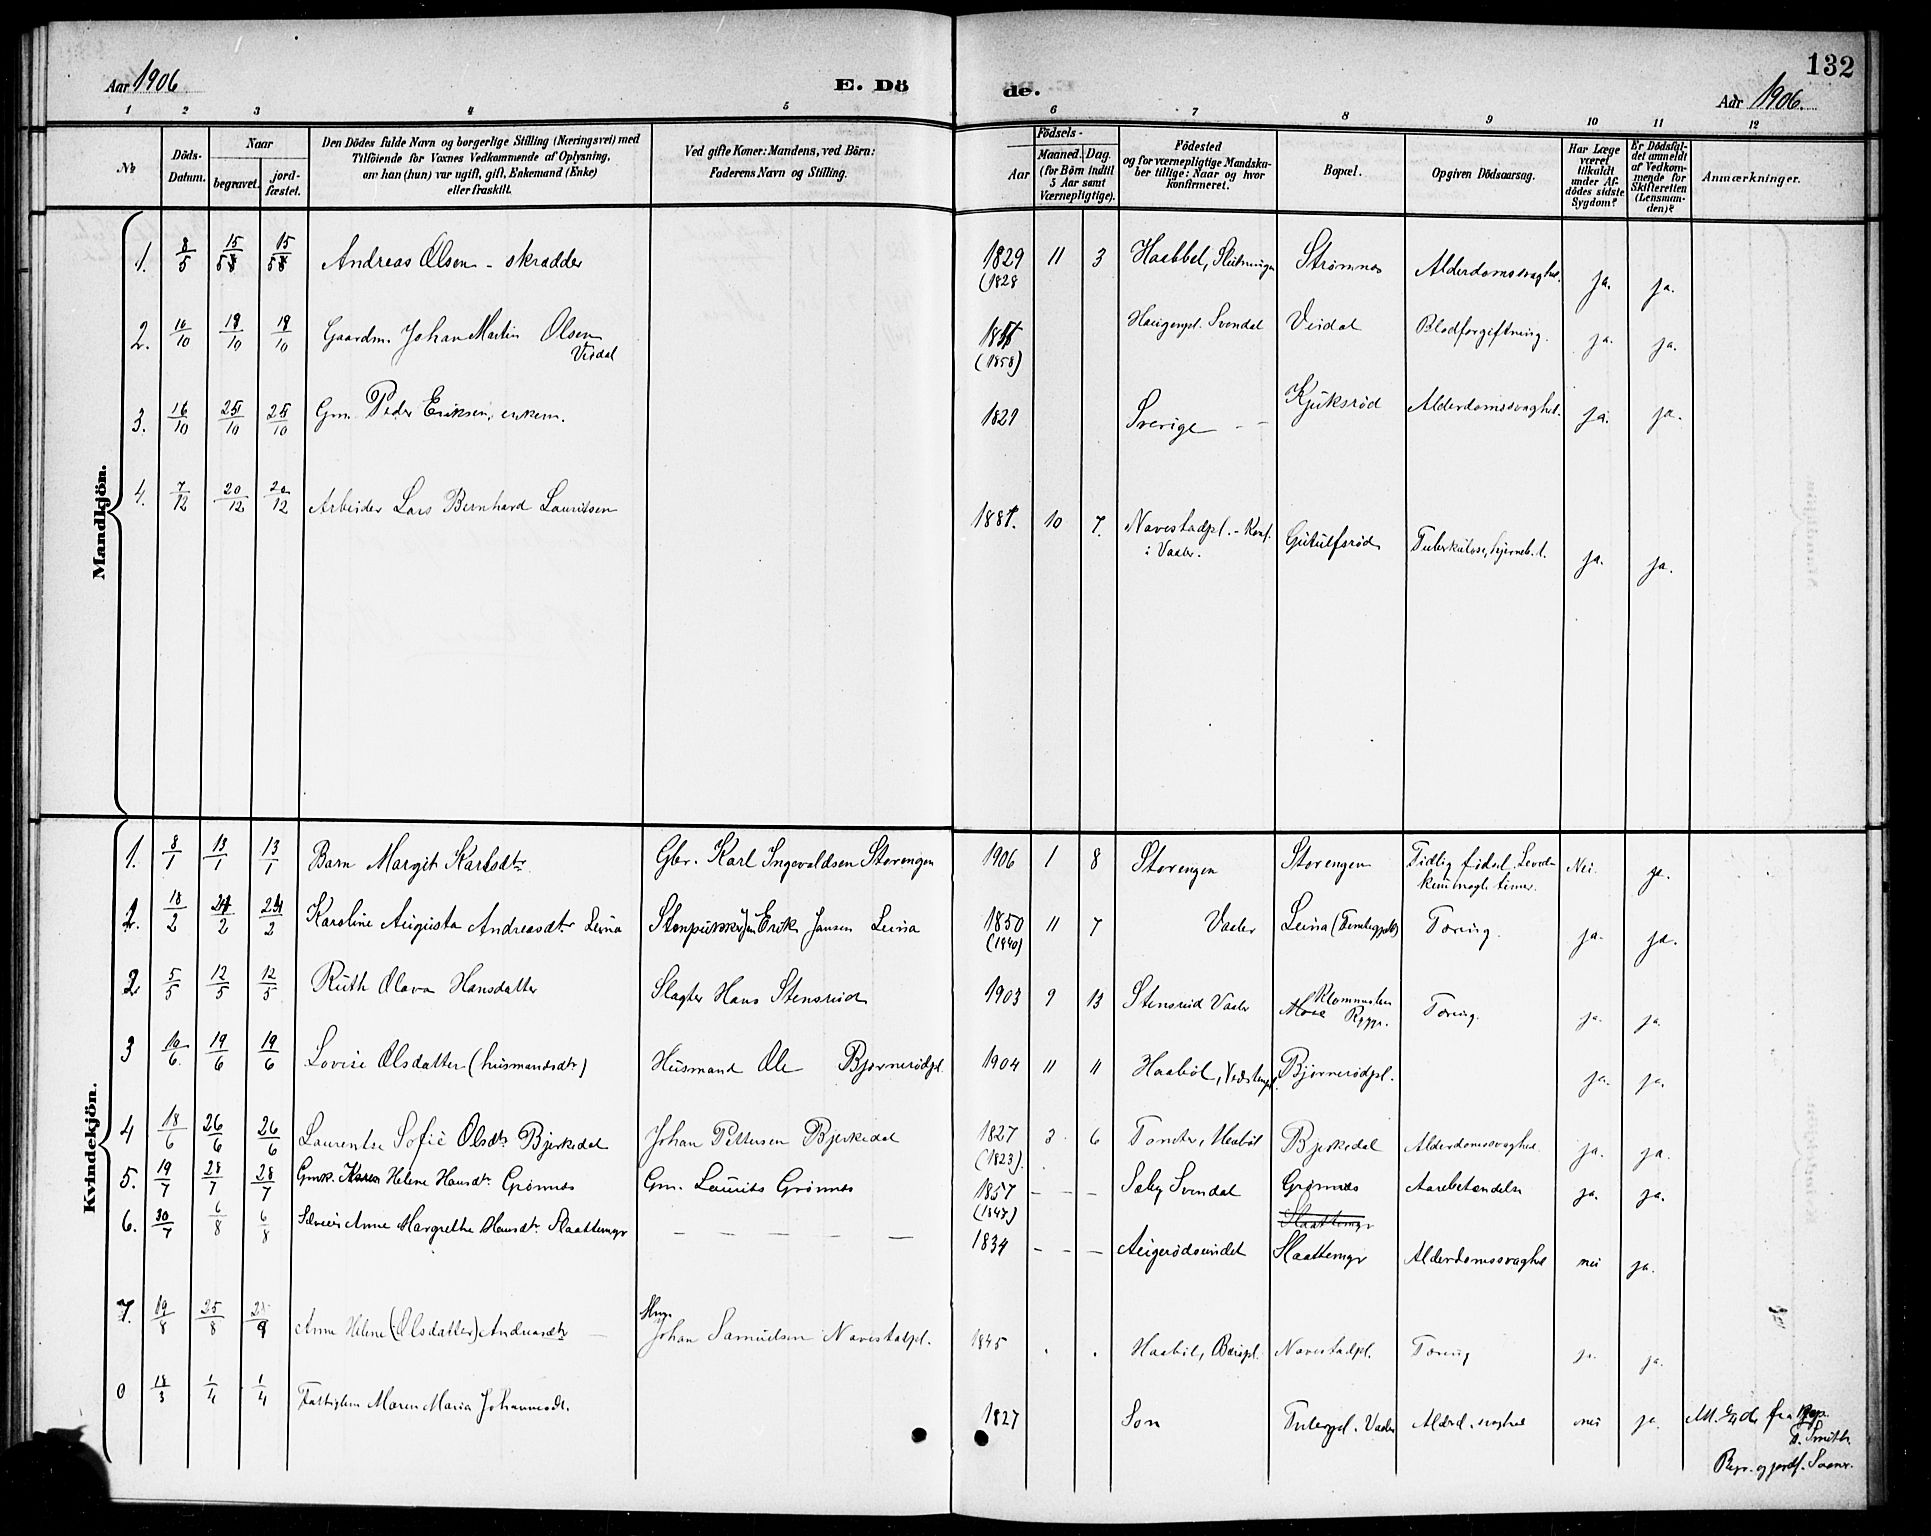 132
Aar 1906
E. Dö
de.
Aar 1906.
1 2 3 4 5 6 7 8 9 10 11 12
No
Döds-Datum.
Naar
begravet.
jord-fæstet.
Den Dödes fulde Navn og borgerlige Stilling (Næringsvei) med
Tilföiende for Voxnes Vedkommende af Oplysning,
om han (hun) var ugift, gift, Enkemand (Enke)
eller fraskilt.
Ved gifte Koner: Mandens, ved Börn:
Faderens Navn og Stilling.
Födsels-
Aar
Maaned. Dag.
(for Börn indtil
5 Aar samt
Værnepligtige).
Födested
og for værnepligtige Mandska-
ber tillige: Naar og hvor
konfirmeret.
Bopæl.
Opgiven Dödsaarsag.
Har Læge
været
tilkaldt
under Af-
dödes sidste
Sygdom?
Er Dödsfal-
det anmeldt
af Vedkom-
mende for
Skifteretten
(Lensman-
den)?
Anmærkninger.
Mandkjön.
1. 8/5 15/5 15/5 Andreas Olsen - skrædder 1829 (1828 11 3 Haabbel, Strømnes Alderdomssvaghed. ja. ja.
2. 10/10 19/10 19/10 Gaardm. Johan Martin Olsen Veidal (1858) Svendal Veidal Blodforgiftning. ja. ja.
3. 16/10 25/10 25/10 Gm. Peder Eriksen, enkem. 1829 Sverige - - Kjuksrød Alderdomssvaghed. ja. ja.
4. 7/12 20/12 20/12 Arbeider Lars Bernhard Lauritsen 1887. 10 7. Navestadpl. - Konf. i Vaaler. Gutulfsrød Tuberkulose, hjerneb.t. ja. ja.
Kvindekjön.
1. 8/1 13/1 13/1 Barn Margit Karlsdtr. Gbr. Karl Ingevaldsen Storengen 1906 1 8 Storengen Storengen Tidlig født. Nei. ja.
2. 18/2 24/2 24/2 Karoline Augusta Andreasdtr Leina Erik Jansen Leina 1850 (1840) 11 7 Vaaler Leina Tæring. ja. ja.
2 5/5 12/5 12/5 Ruth Olava Hansdatter Slagter Hans Stensrud 1903 9 13 Stensrud Vaaler Rygge. Tæring. ja. ja.
3 10/6. 19/6 19/6 Lovise Olsdatter (husmandsdtr) Husmand Ole Bjørnerødpl. 1904 11 11 Haabøl, Bjørnerødpl. ja. ja.
4 18/6 26/6 26/6 Laurentse Sofie Olsdtr Bjerkedal Johan Pettersen Bjerkedal 1827 (1823). 3 6 Tomter, Haabøl Bjerkedal Alderdomssvaghed. ja. ja.
5. 19/7 28/7 28/7 Gmk. Karen Helene Hansdtr. Grønnes Gm. Laurits Grønnes 1857 (1847) - - Sæby Svendal Grønnes Aarebetændelse ja. ja.
6. 30/7 6/8 6/8 Anne Margrethe Hansdtr Slaattemyr - - - - - 1834 - - Augerødeindet Slaattemyr Slaattemyr Alderdomssvaghed nei ja.
7. 19/8 25/8 Anne Helene (Olsdatter) Andreasdtr - Johan Samuelsen Navestadpl. 1845 . . Haabøl, Navestadpl. Tæring ja. ja.
0 18/3 1/4 1/4 Fattiglem Maren Maria Johannesdtr. 1827 Son Vaaler Alderd. svaghed nei ja. fra Smith. Begr. og jordf.